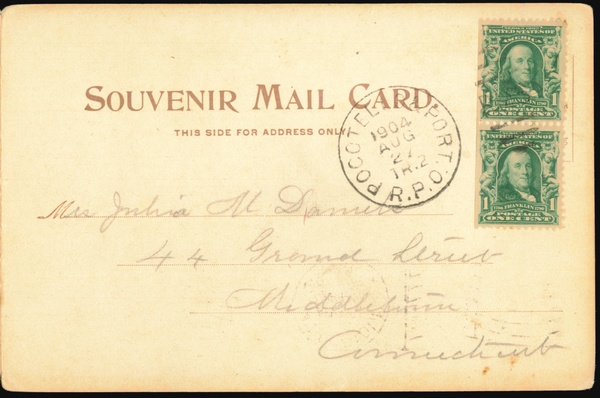 SOUVENIR MAIL CARD.
THIS SIDE FOR ADDRESS ONLY
POCOTEL & PORT. R.P.O.
1904
AUG
27
TR.2
SERIES 1902
UNITED STATES OF
AMERICA
1 1706 FRANKLIN 1790 1
POSTAGE
ONE CENT
UNITED STATES OF
AMERICA
1 1706 FRANKLIN 1790 1
POSTAGE
ONE CENT
Mrs Julia M Daniels
44 Grand Street
Middletown
Connecticut